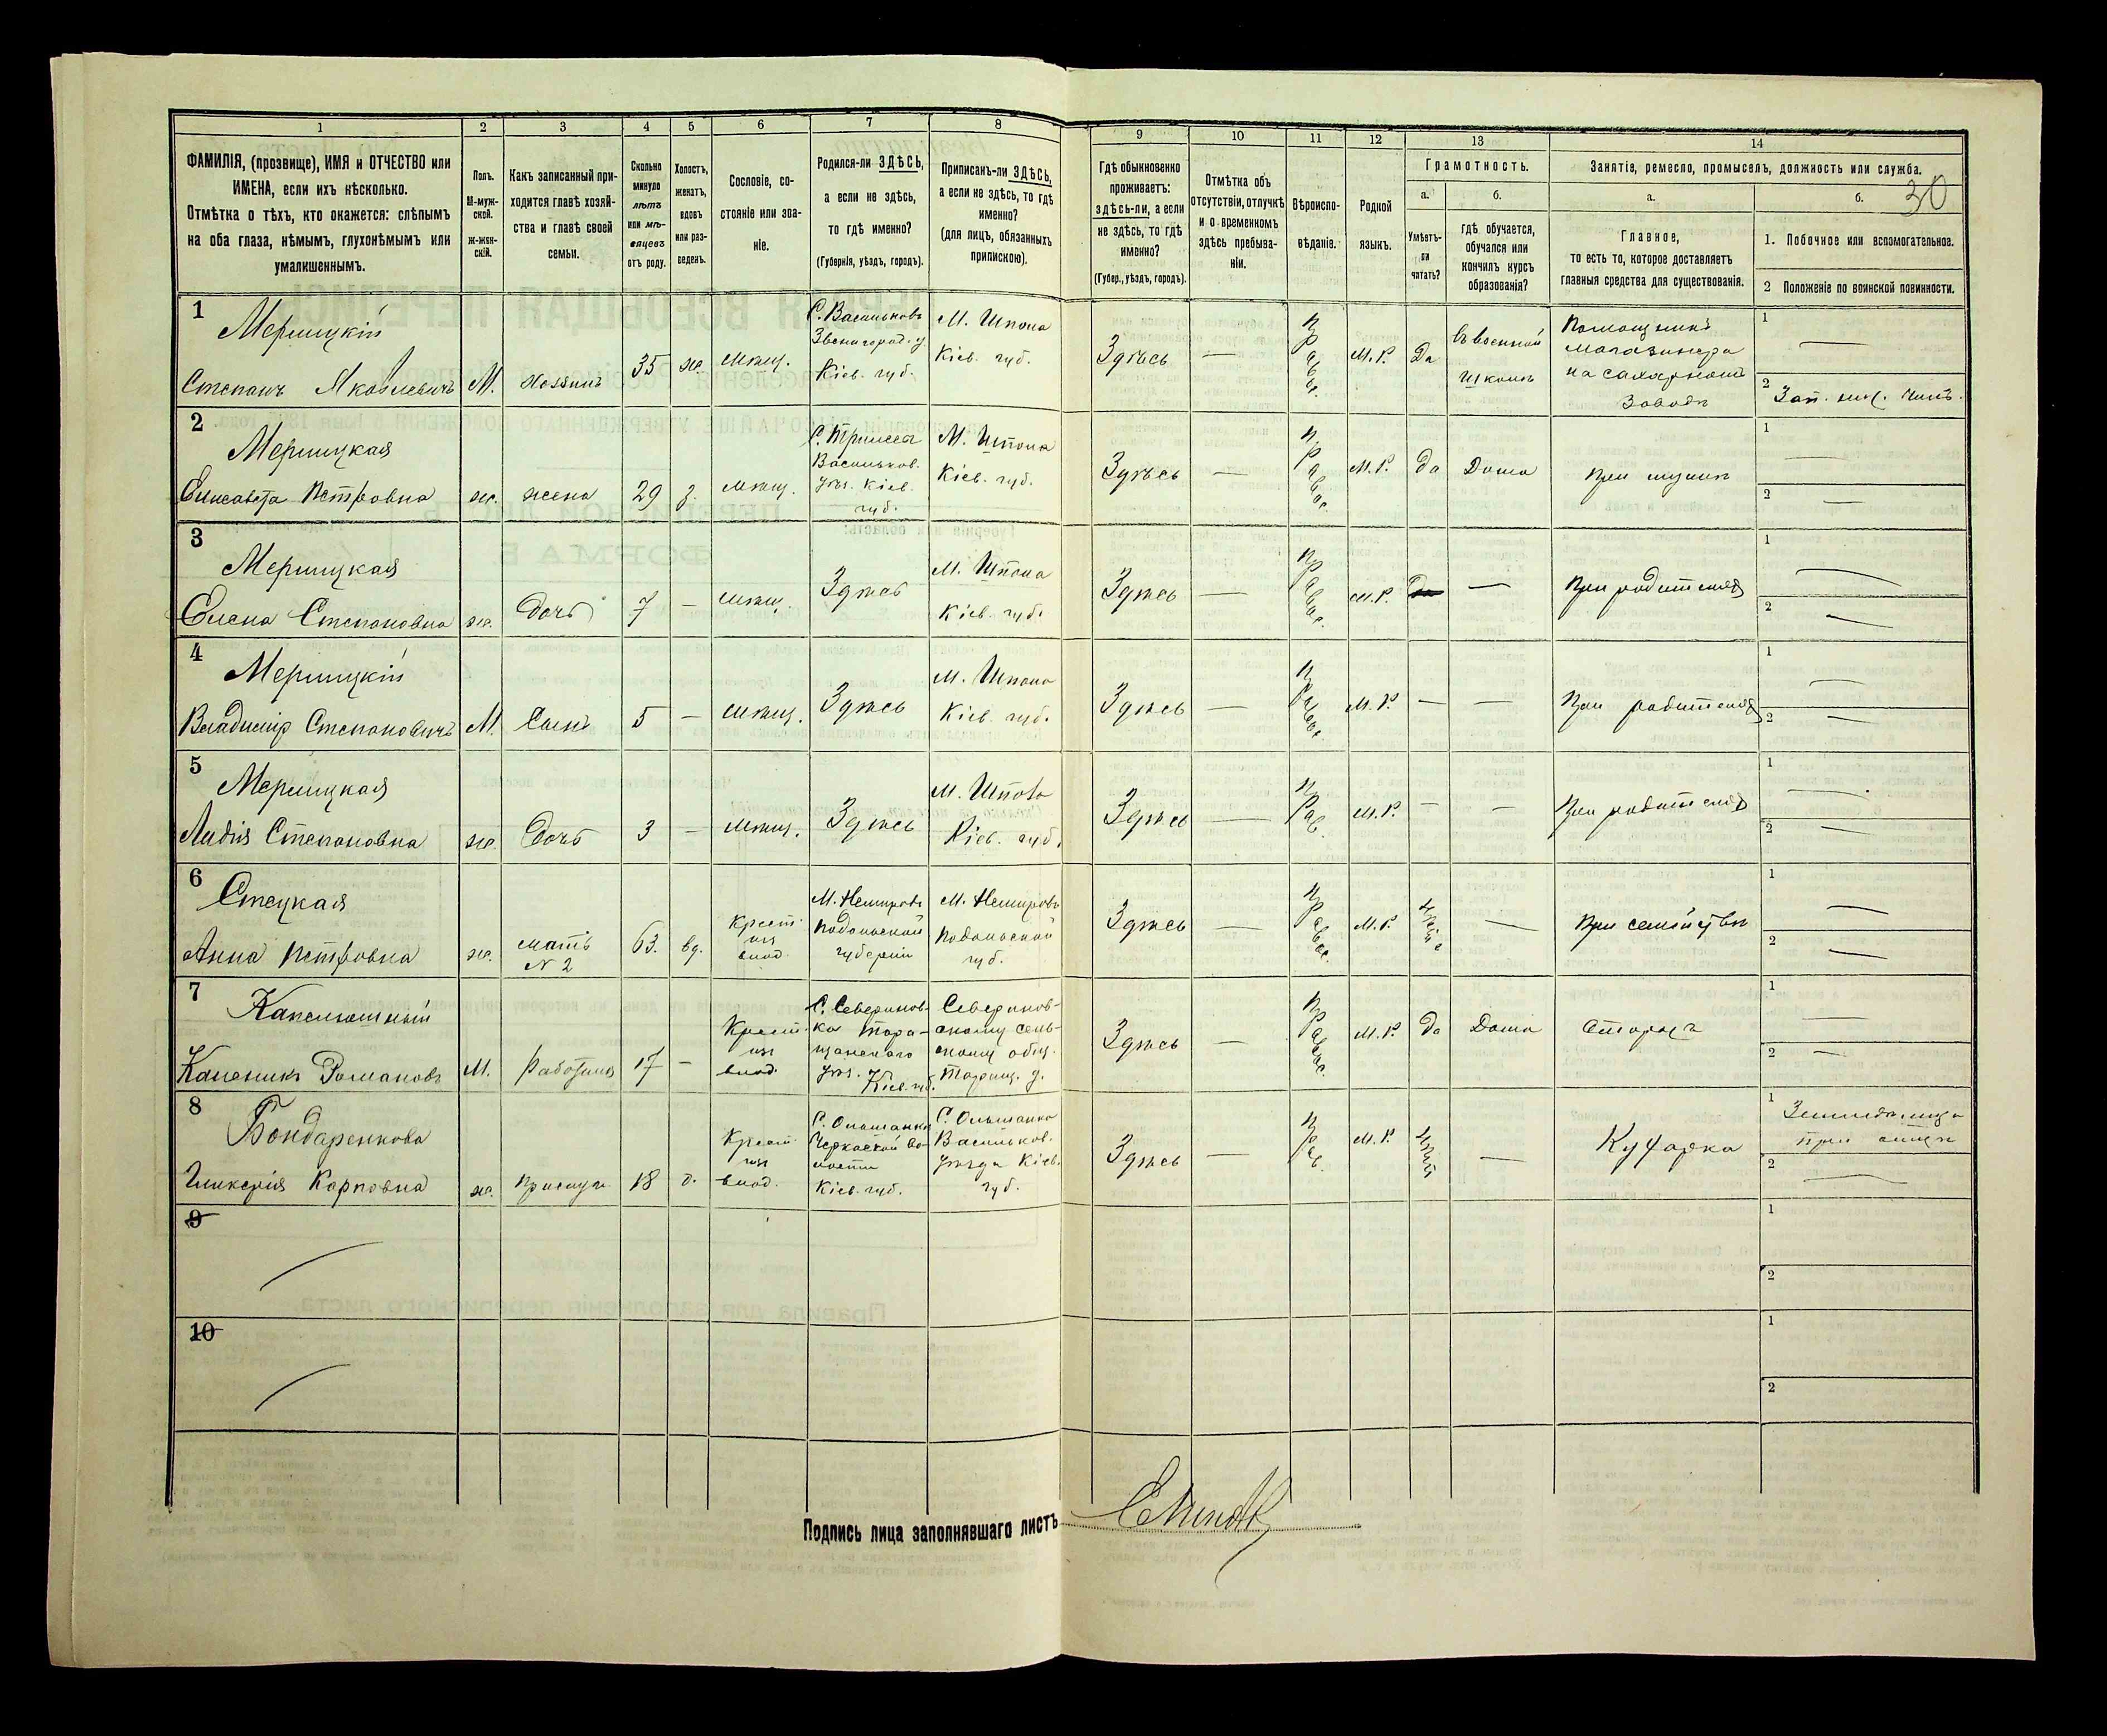 1 2 3 4 5 6 7 8 9 10 11 12 13 14
ФАМИЛІЯ, (прозвище), ИМЯ и ОТЧЕСТВО или
ИМЕНА, если ихъ нѣсколько.
Отмѣтка о тѣхъ, кто окажется: слѣпымъ
на оба глаза, нѣмымъ, глухонѣмымъ или
умалишеннымъ.
Полъ.
М-муж-
ской.
Ж-жен-
скій.
Какъ записанный при-
ходится главѣ хозяй-
ства и главѣ своей
семьи.
Сколько
минуло
лѣтъ
или мѣ-
сяцевъ
отъ роду.
Холостъ,
женатъ,
вдовъ
или раз-
веденъ.
Сословіе, со-
стояніе или зва-
ніе.
Родился-ли ЗДѢСЬ,
а если не здѣсь,
то гдѣ именно?
(Губернія, уѣздъ, городъ).
Приписанъ-ли ЗДѢСЬ,
а если не здѣсь, то гдѣ
именно?
(для лицъ, обязанныхъ
припискою).
Гдѣ обыкновенно
проживаетъ:
здѣсь-ли, а если
не здѣсь, то гдѣ
именно?
(Губер., уѣздъ, городъ).
Отмѣтка объ
отсутствіи, отлучкѣ
и о временномъ
здѣсь пребыва-
ніи.
Вѣроиспо-
вѣданіе.
Родной
языкъ.
Грамотность.
а.
Умѣетъ-
ли
читать?
б.
гдѣ обучается,
обучался или
кончилъ курсъ
образованія?
Занятіе, ремесло, промыселъ, должность или служба.
30
а.
Главное,
то есть то, которое доставляетъ
главныя средства для существованія.
б.
1. Побочное или вспомогательное.
2 Положеніе по воинской повинности.
1
Мерицкій
Степанъ Яковлевичъ
М.
Хозяинъ
35
ж.
мѣщ.
С. Васильковъ
Звенигород. у.
Кіев. губ.
М. Шпола
Кіев. губ.
Здѣсь
—
Прав
М. Р.
Да
въ военной
школѣ
Помощникъ
магазинера
на сахарномъ
заводѣ
1 —
2 Зап. ниж. чинъ.
2
Мерицкая
Елисавета Петровна
ж.
жена
29
з.
мѣщ.
Васильков.
уѣз. Кіев.
губ.
М. Шпола
Кіев. губ.
Здѣсь
—
Правос.
М. Р.
да
Дома
При мужѣ
1 —
2 —
3
Мерицкая
Елена Степановна
ж.
Дочь
7
—
мѣщ.
Здѣсь
М. Шпола
Кіев. губ.
Здѣсь
—
Правос.
М. Р.
—
При родителяхъ
1 —
2 —
4
Мерицкій
Владиміръ Степановичъ
М.
Сынъ
5
—
мѣщ.
Здѣсь
М. Шпола
Кіев. губ.
Здѣсь
—
Правос.
М. Р.
—
—
При родителяхъ
1 —
2 —
5
Мерицкая
Лидія Степановна
ж.
Дочь
3
—
мѣщ.
Здѣсь
М. Шпола
Кіев. губ.
Здѣсь
—
Прав.
М. Р.
—
—
При родителяхъ
1 —
2 —
6
Стецкая
Анна Петровна
ж.
мать
N 2
63.
вд.
Крест.
изъ
влад.
М. Немировъ
Подольской
губерніи
М. Немировъ
Подольской
губ.
Здѣсь
—
Правос.
М. Р.
—
При семействѣ
1 —
2 —
7
Капелюшный
Каленикъ Романовъ
М.
Работникъ
17
—
Крест.
изъ
влад.
С. Севериновка
ка Тара-
щанскаго
уѣз. Кіев. губ.
Северинов-
скому сель-
скому общ.
Таращ. у.
Здѣсь
—
Правос.
М. Р.
да
Дома
Сторожъ
1 —
2 —
8
Бондаренкова
Гликерія Карповна
ж.
прислуга
18
Крест.
изъ
влад.
С. Ольшанка
Черкаской во-
лости
Кіев. губ.
С. Ольшанка
Васильков.
уѣзда Кіев.
губ.
Здѣсь
—
Прав.
М. Р.
нѣтъ
—
Кухарка
1
при отцѣ
2 —
9
1
2
10
1
2
Подпись лица заполнявшаго листъ